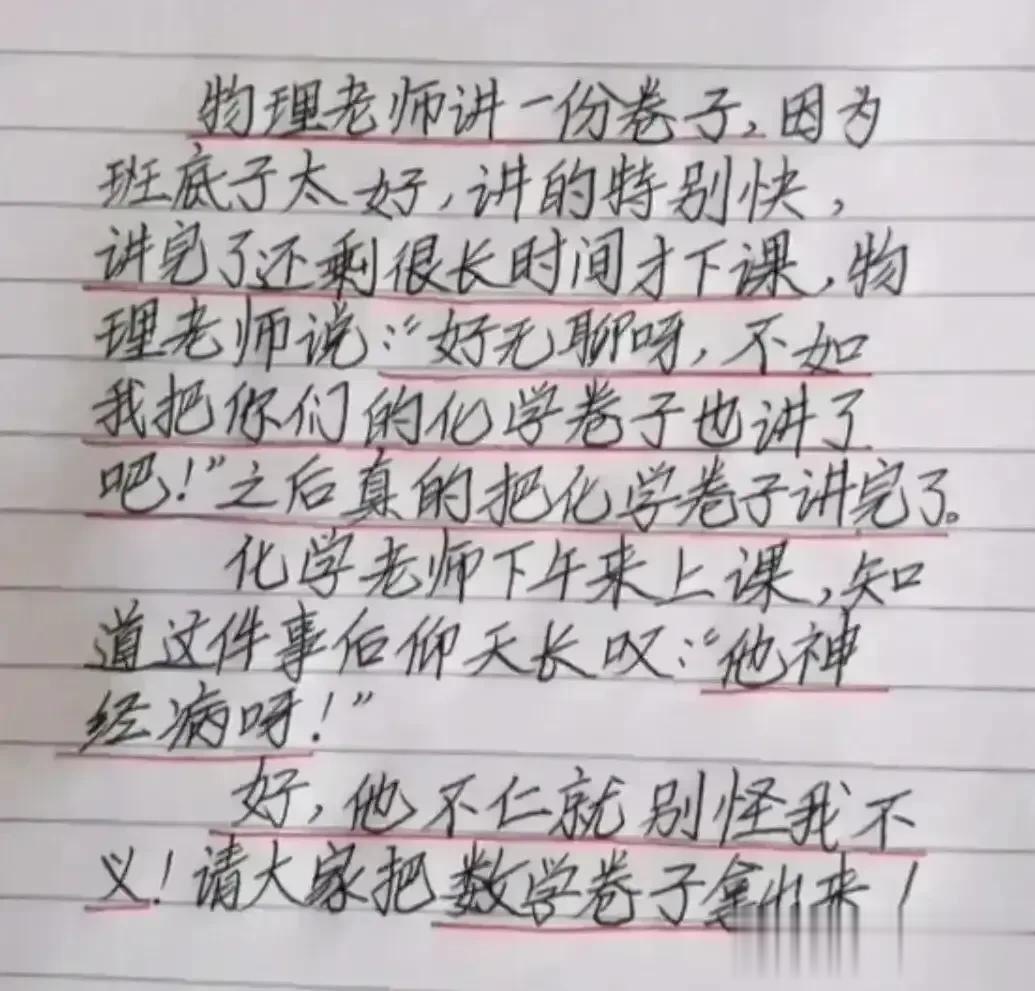 物理老师讲一份卷子，因为
班底子太好，讲的特别快，
讲完了还剩很长时间才下课，物
理老师说：“好无聊呀，不如
我把你们的化学卷子也讲了
吧！”之后真的把化学卷子讲完了。
化学老师下午来上课，知
道这件事后仰天长叹：“他神
经病呀！”
好，他不仁就别怪我不
义！请大家把数学卷子拿出来！